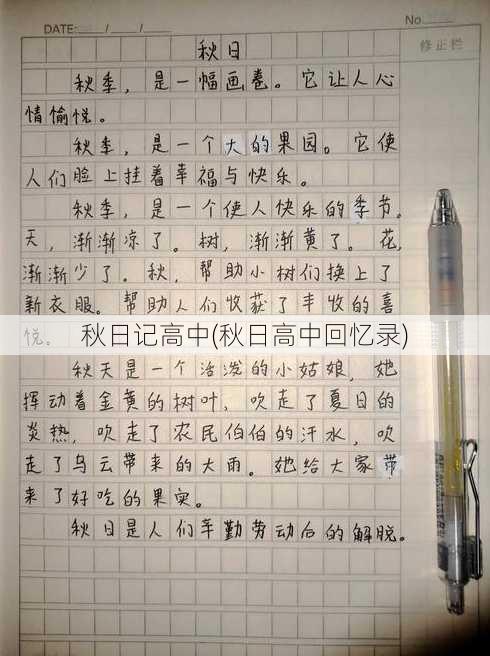 DATE: / /
No.
修正栏
秋日
秋季，是一幅画卷。它让人心
情愉悦。
秋季，是一个大的果园。它使
人们脸上挂着幸福与快乐。
秋季，是一个使人快乐的季节。
天，渐渐凉了。树，渐渐黄了。花，
渐渐少了。秋，帮助小树们换上了
新衣服。帮助人们收获了丰收的喜
悦。
秋日记高中(秋日高中回忆录)
秋天是一个活泼的小姑娘，她
挥动着金黄的树叶，吹走了夏日的
炎热，吹走了农民伯伯的汗水，吹
走了乌云带来的大雨。她给大家带
来了好吃的果实。
秋日是人们辛勤劳动后的解脱。